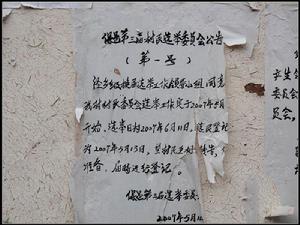 侣邑第三届村民选举委员会公告
（第一号）
经乡级换届选举工作领导小组同意
我村村民委员会选举工作定于2007年5月
开始，选举日为2007年6月11日，选民登记
为2007年5月15日，望村民互相转告，
准备，届时进行登记。
第三届选举委员
2007年5月